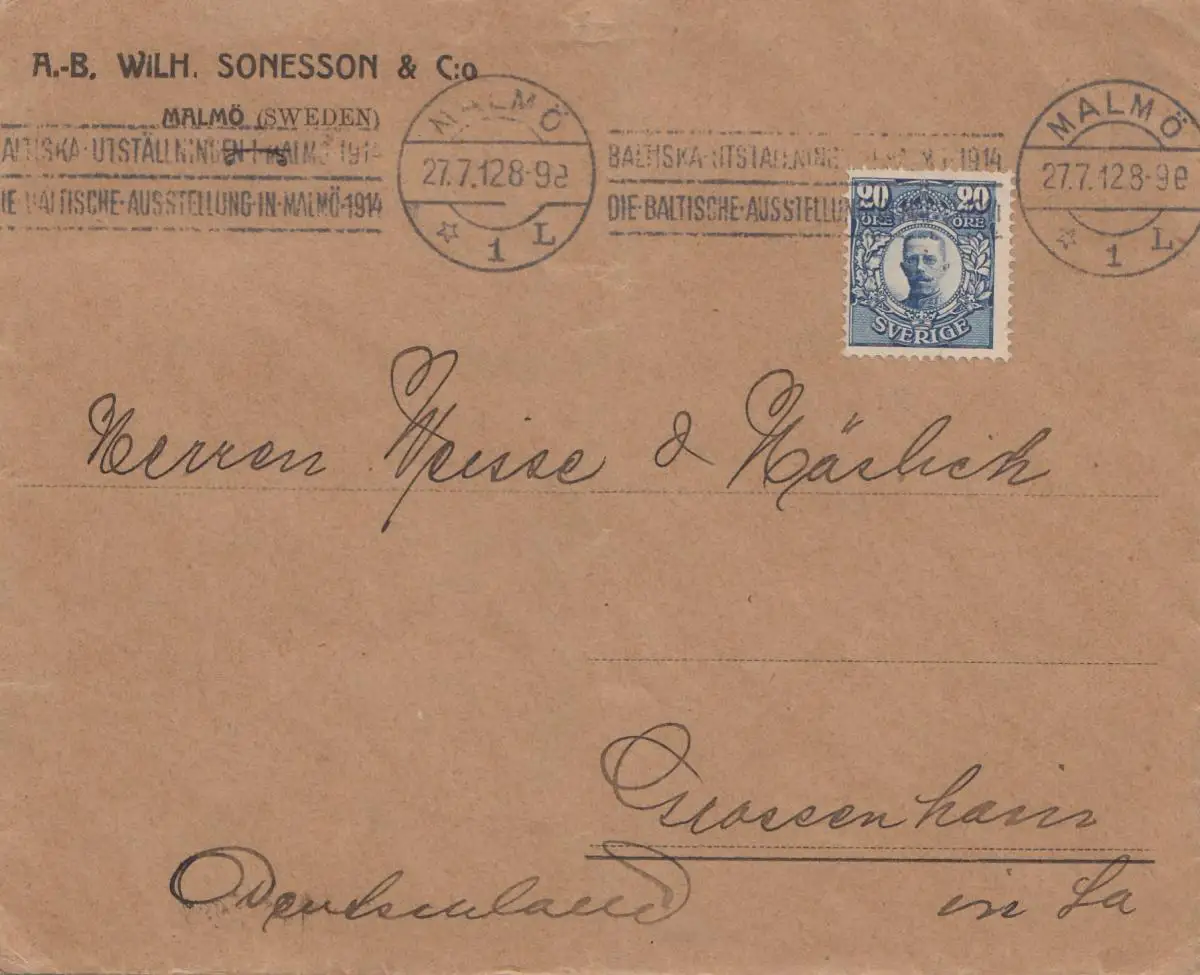 A.-B. WILH. SONESSON & C:o
MALMÖ (SWEDEN)
ALTISKA-UTSTÄLLNINGEN I MALMÖ 1914
IE BALTISCHE-AUSSTELLUNG-IN-MALMÖ-1914
MALMÖ
27.7.12 8-9 e
1 L
BALTISKA-UTSTÄLLNING 1914
DIE-BALTISCHE-AUSSTELLUN
MALMÖ
27.7.12 8-9 e
1 L
20 20
ÖRE ÖRE
SVERIGE
Herren Weisse & Häslich
Grossenhain
Deutschland in Sa